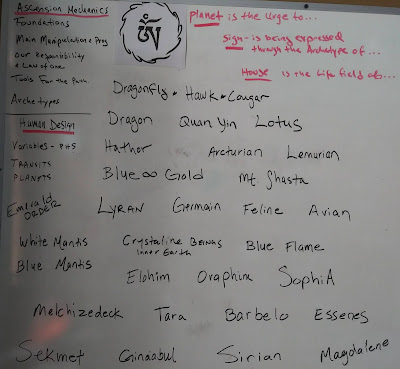 Ascension Mechanics
Foundations
Main Manipulation & Prog
Our Responsibility
& Law of One
Tools For the Path
Archetypes
Human Design
Variables - PHS
TRANSITS
PLANETS
Emerald
ORDER
White Mantis
Blue Mantis
ༀ
Planet is the Urge to...
Sign - is being expressed
through the Archetype of...
House is the Life field of...
Dragonfly • Hawk • Cougar
Dragon Quan Yin Lotus
Hathor Arcturian Lemurian
Blue ∞ Gold Mt. Shasta
LYRAN Germain Feline Avian
Crystaline BEINGS Blue Flame
Inner Earth
Elohim Oraphim SophiA
Melchizedeck Tara Barbelo Essenes
Sekmet Ginaabul Sirian Magdalene